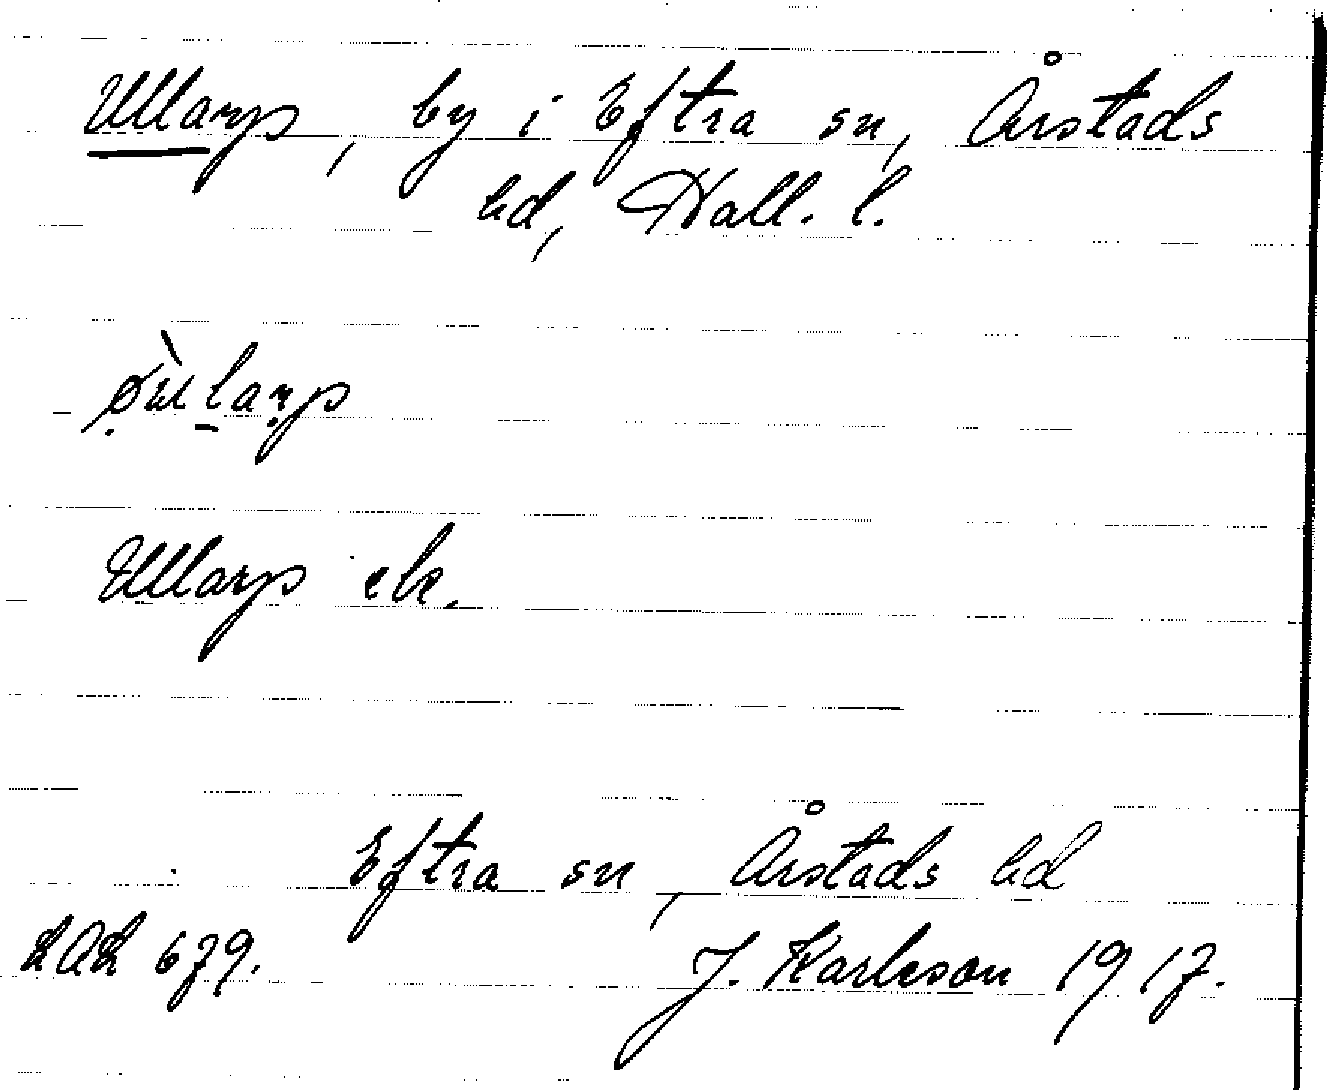 Ullarp, by i Eftra sn, Årstads
hd, Hall. l.
Ullarp etc.
Eftra sn, Årstads hd
LAL 679.
J. Karlsson 1917.